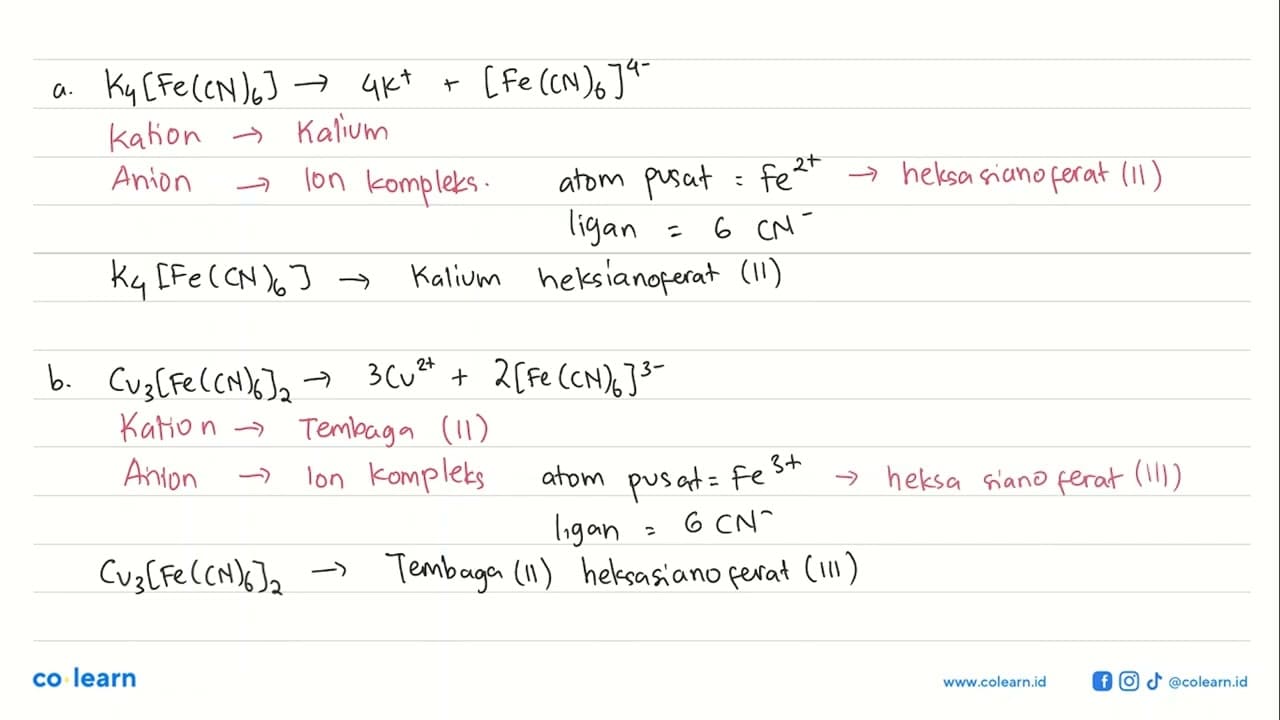 a. K₄[Fe(CN)₆] → 4K⁺ + [Fe(CN)₆]⁴⁻
Kation → Kalium
Anion → Ion kompleks. atom pusat = Fe²⁺ → heksasianoferat (II)
ligan = 6 CN⁻
K₄[Fe(CN)₆] → Kalium heksianoferat (II)
b. Cu₃[Fe(CN)₆]₂ → 3Cu²⁺ + 2[Fe(CN)₆]³⁻
Kation → Tembaga (II)
Anion → Ion kompleks atom pusat = Fe³⁺ → heksa siano ferat (III)
ligan = 6 CN⁻
Cu₃[Fe(CN)₆]₂ → Tembaga (II) heksasianoferat (III)
co learn www.colearn.id @colearn.id